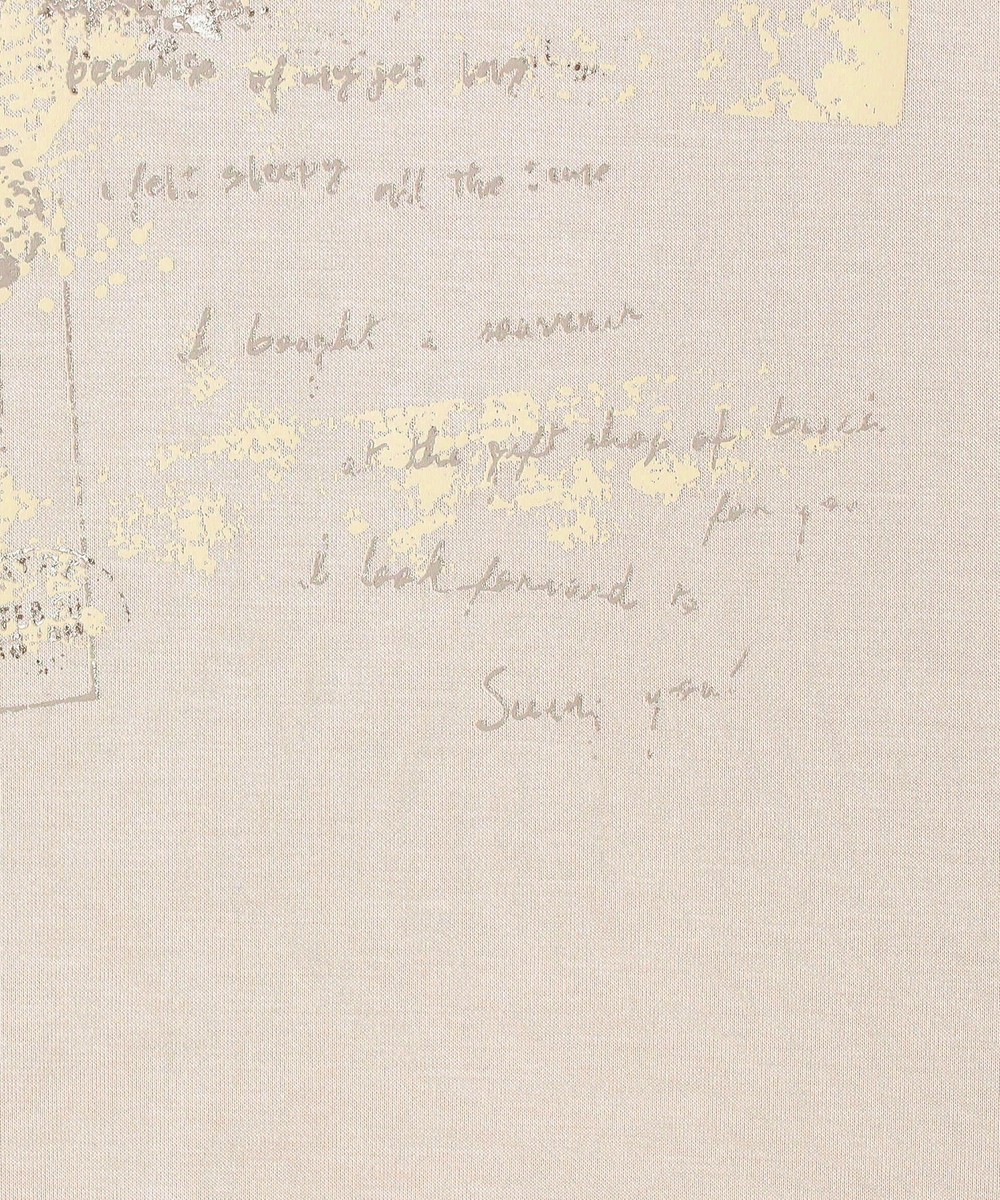 because of my jet lag
i felt sleepy all the time
I bought a souvenir
at the gift shop of
for you
I look forward to
you!